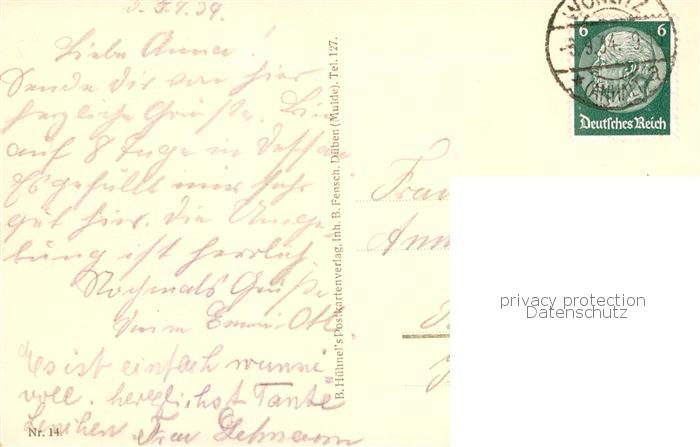 d. 7.4.39.
Liebe Anna!
Sende dir von hier
herzliche Grüße. Bin
auf 8 Tage in Dessau
Es gefällt mir sehr
gut hier. Die Umge-
bung ist herrlich.
Nochmals Grüße
Deine
Es ist einfach wunder
voll. herzlichst Tante
Lenchen Frau Lehmann
Nr. 14.
B. Hühnel's Postkartenverlag, Inh. B. Fensch, Düben (Mulde). Tel. 127.
WÖRLITZ
(ANHALT)
6 6
Deutsches Reich
Frau
privacy protection
Datenschutz